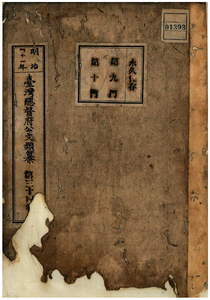 01393
永久保存
第九門
第十門
明治
四十一年
臺灣總督府公文類纂